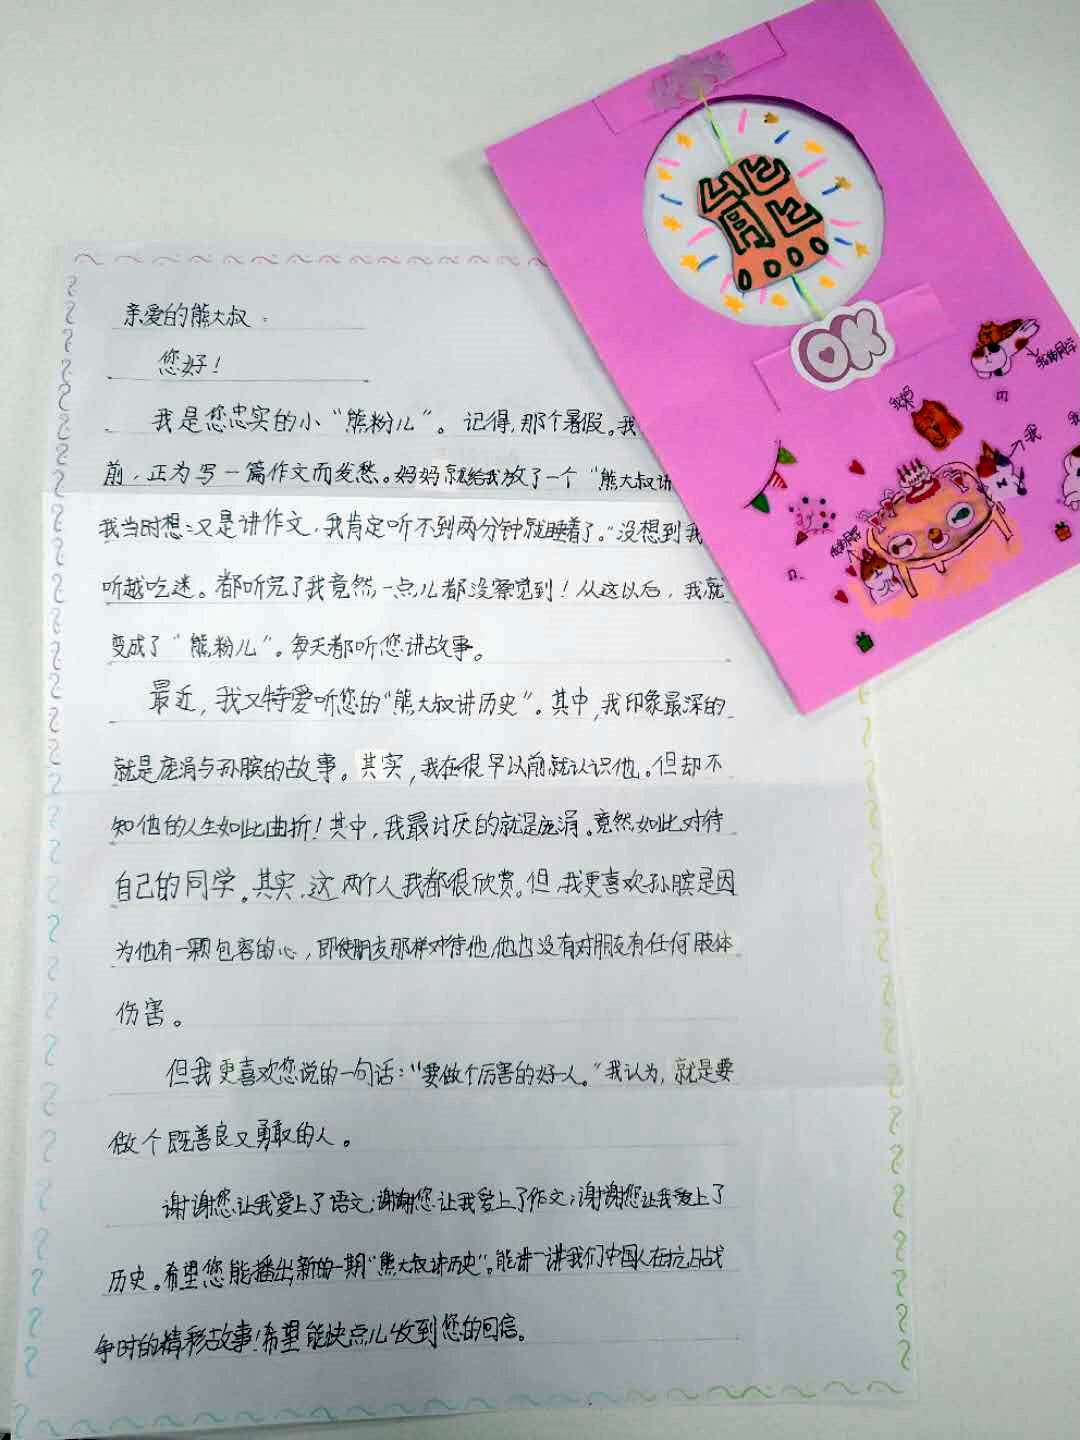 亲爱的熊大叔：
您好！
我是您忠实的小“熊粉儿”。记得，那个暑假。我
前，正为写一篇作文而发愁。妈妈就给我放了一个“熊大叔讲
我当时想：又是讲作文，我肯定听不到两分钟就睡着了。”没想到我
听越吃迷。都听完了我竟然一点儿都没察觉到！从这以后，我就
变成了“熊粉儿”。每天都听您讲故事。
最近，我又特爱听您的“熊大叔讲历史”。其中，我印象最深的
就是庞涓与孙膑的故事。其实，我在很早以前就认识他。但却不
知他的人生如此曲折！其中，我最讨厌的就是庞涓。竟然如此对待
自己的同学。其实，这两个人我都很欣赏。但，我更喜欢孙膑是因
为他有一颗包容的心，即使朋友那样对待他，他也没有对朋友有任何肢体
伤害。
但我更喜欢您说的一句话：“要做个厉害的好人。”我认为，就是要
做个既善良又勇敢的人。
谢谢您让我爱上了语文；谢谢您让我爱上了作文；谢谢您让我爱上了
历史。希望您能播出新的一期“熊大叔讲历史”。能讲一讲我们中国人在抗日战
争时的精彩故事！希望能快点儿收到您的回信。
OK
我